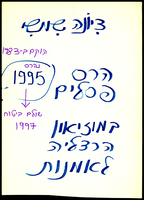 דיונה שושי
הוקם ב-1993
נהרס
1995
שולם ביטוח
1997
הרס
פסלים
במוזיאון
הרצליה
לאמנות